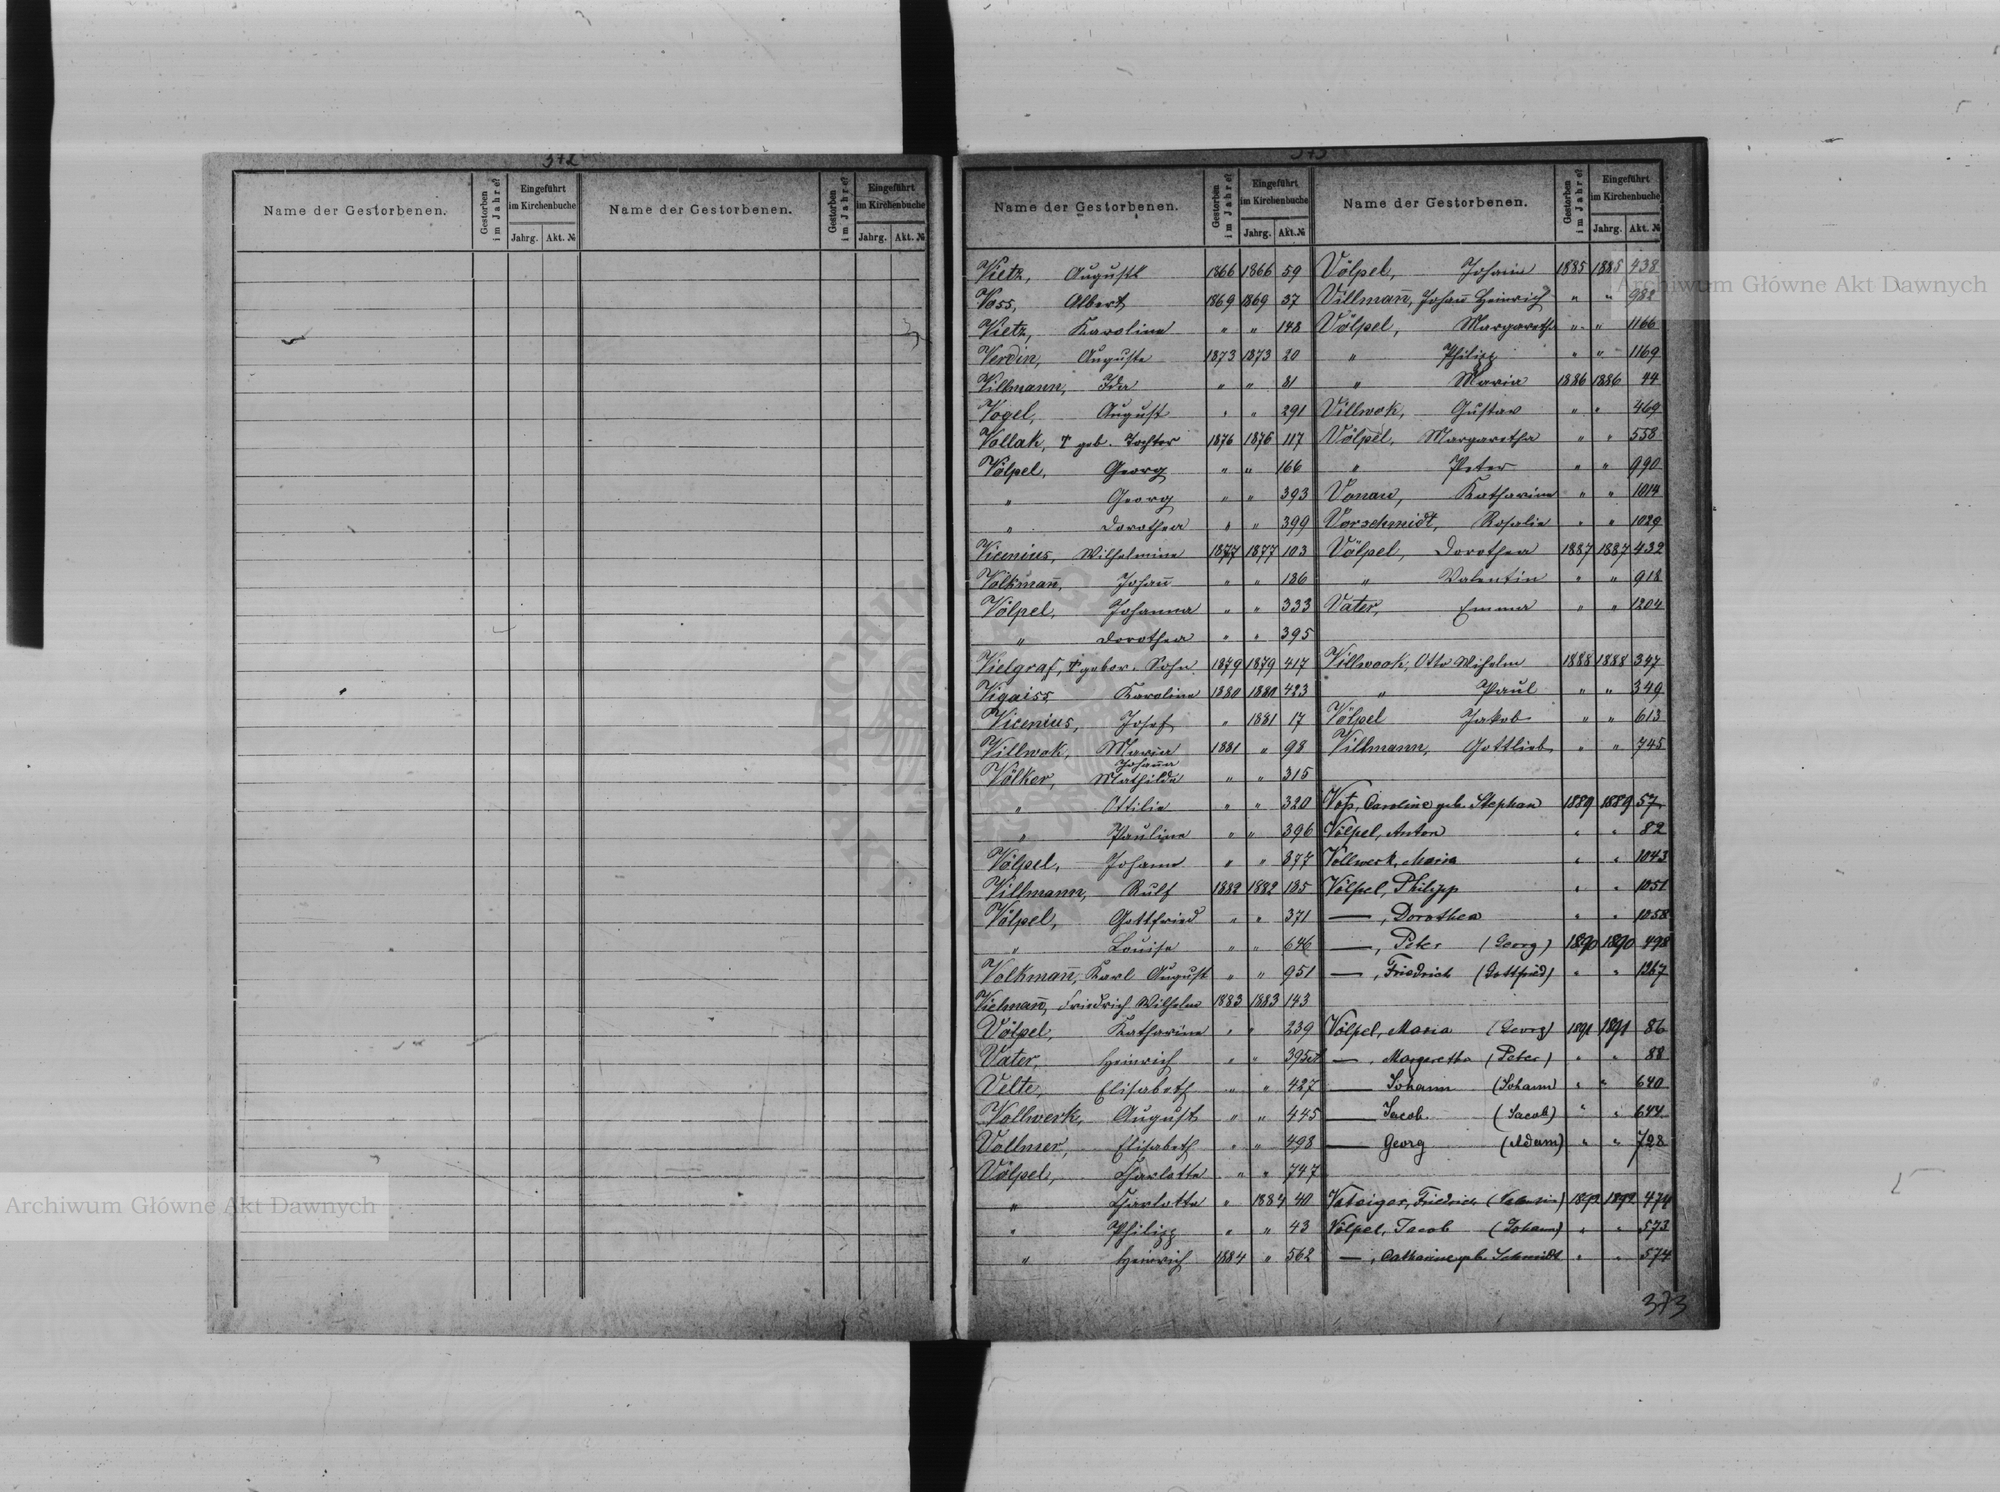 372
Name der Gestorbenen.
Gestorben im Jahre?
Eingeführt im Kirchenbuche
Jahrg.
Akt. №
Name der Gestorbenen.
Gestorben im Jahre?
Eingeführt im Kirchenbuche
Jahrg.
Akt. №
373
Name der Gestorbenen.
Gestorben im Jahre?
Eingeführt im Kirchenbuche
Jahrg.
Akt. №
Vietz, August 1866 1866 59
Voss, Albert 1869 1869 37
Vietz, Karoline " " 148
Verdin, Auguste 1873 1873 20
Villmann, Ida " " 81
Vogel, August " " 291
Vollak, † geb. Tochter 1876 1876 117
Völpel, Georg " " 166
" Georg " " 393
" Dorothea " " 399
Vicenius, Wilhelmine 1877 1877 103
Volkmañ, Johañ " " 186
Völpel, Johanna " " 333
" Dorothea " " 395
Vielgraf, † gebor. Sohn 1879 1879 417
Vigaiss, Karoline 1880 1880 423
Vicenius, Josef " 1881 17
Villwok, Maria 1881 " 98
Völker, Johaña Mathilde " " 315
" Ottilie " " 320
" Pauline " " 396
Völpel, Johann " " 377
Villmann, Rulf 1882 1882 185
Völpel, Gottfried " " 371
" Louise " " 646
Volkmañ, Karl August " " 951
Vielmañ, Friedrich Wilhelm 1883 1883 143
Völpel, Katharine " " 239
Vater, Heinrich " " 395
Velte, Elisabeth " " 427
Vollwerk, August " " 445
Vollmer, Elisabeth " " 498
Völpel, Charlotte " " 747
" Charlotte " 1884 40
" Philipp " " 43
" Heinrich 1884 " 562
Name der Gestorbenen.
Gestorben im Jahre?
Eingeführt im Kirchenbuche
Jahrg.
Akt. №
Völpel, Johann 1885 1885 438
Villmañ, Johañ Heinrich " " 982
Völpel, Margaretha " " 1166
" Philipp " " 1169
" Maria 1886 1886 44
Villwok, Gustav " " 469
Völpel, Margaretha " " 558
" Peter " " 990
Vonau, Katharine " " 1014
Vorschmidt, Rosalie " " 1029
Völpel, Dorothea 1887 1887 432
" Valentin " " 918
Vater, Emma " " 1204
Villwook, Otto Wilhelm 1888 1888 347
" Paul " " 349
Völpel Jakob " " 613
Villmann, Gottlieb " " 745
Voss, Caroline geb. Stephan 1889 1889 57
Völpel, Anton " " 82
Vollwerk, Maria " " 1043
Völpel, Philipp " " 1051
— , Dorothea " " 1058
— , Peter (Georg) 1890 1890 498
— , Friedrich (Gottfried) " " 1367
Völpel, Maria (Georg) 1891 1891 86
— , Margaretha (Peter) " " 88
— Johann (Johann) " " 640
— Jacob (Jacob) " " 644
— Georg (Adam) " " 728
Friedrich 1892 1892 474
Völpel, Jacob (Johann) " " 573
— , Catharine geb. Schmidt " " 574
373
Archiwum Główne Akt Dawnych
Archiwum Główne Akt Dawnych